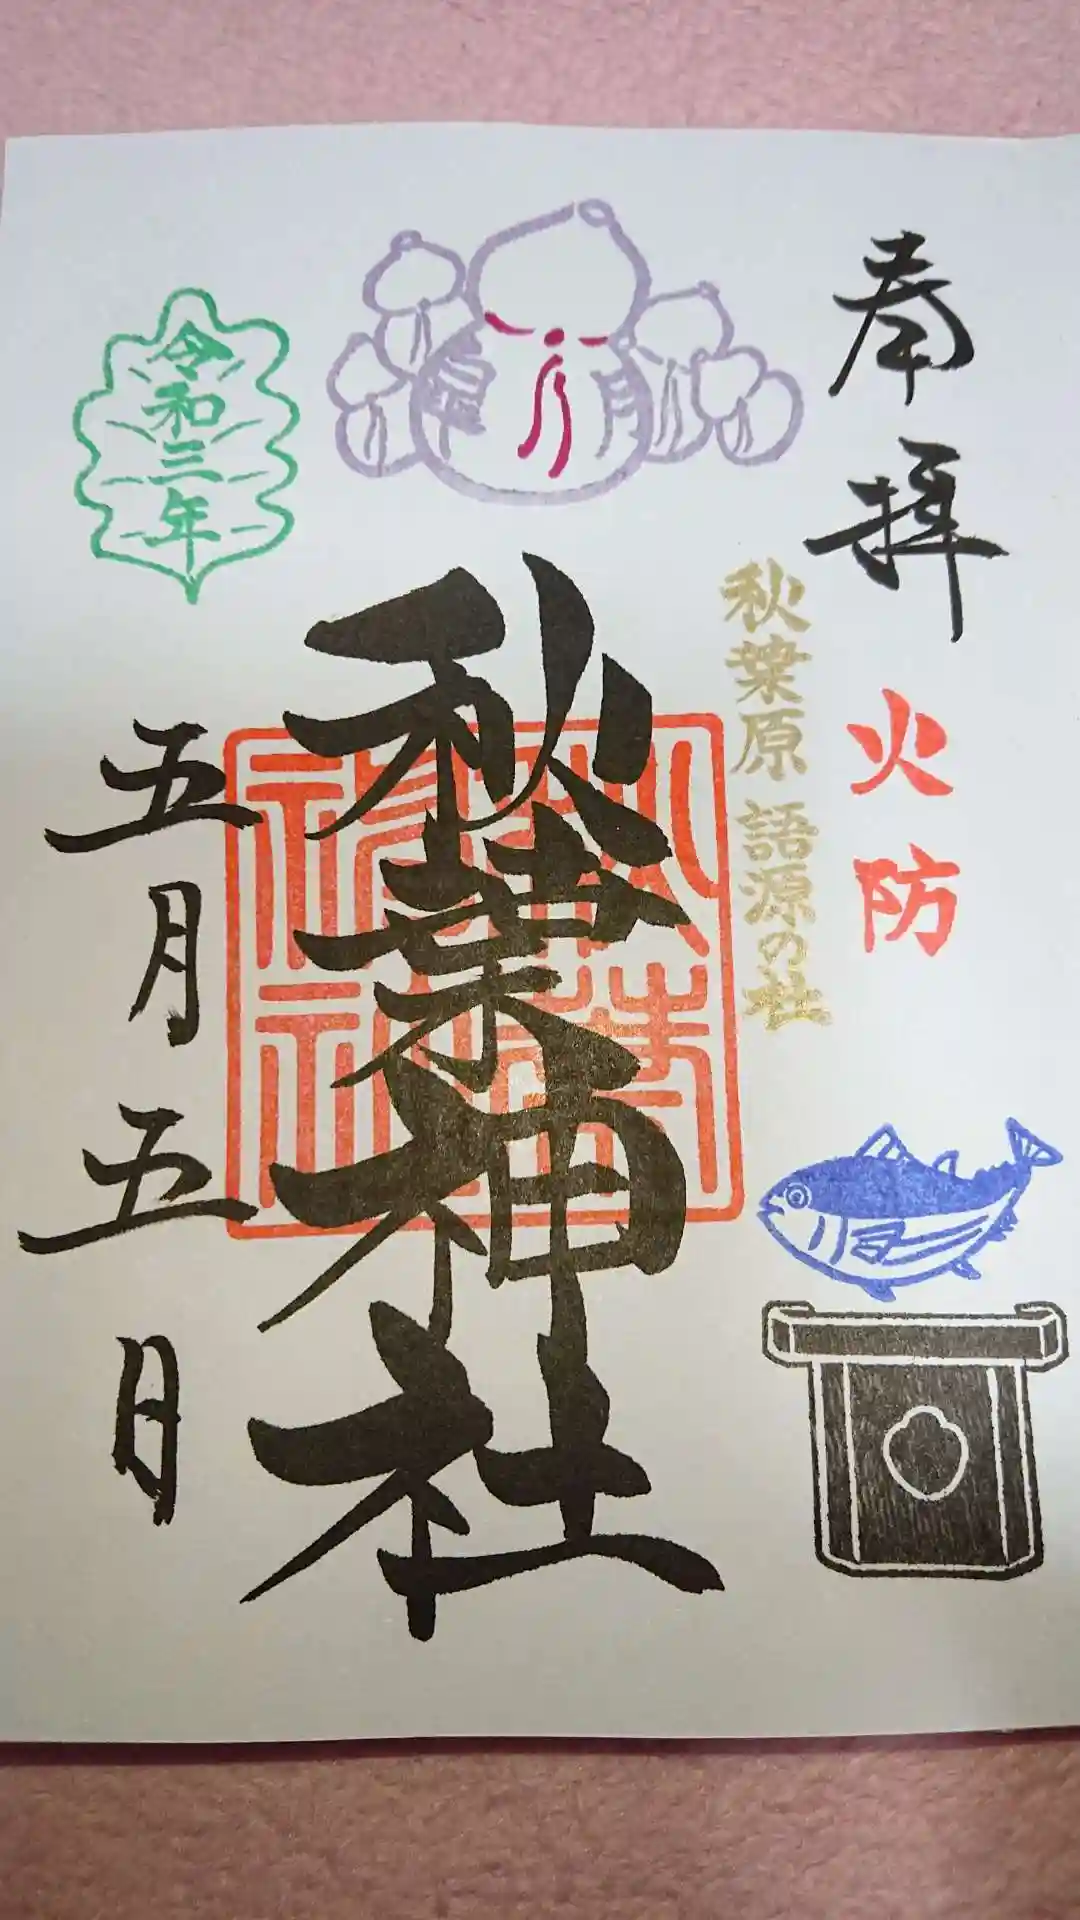 奉拝
火防
秋葉原 語源の社
秋葉神社
秋葉神社
令和三年
五月五日